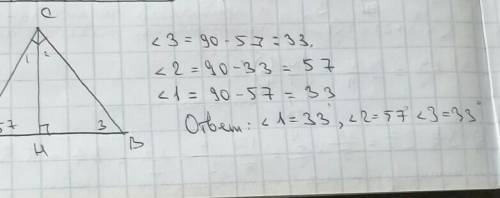 C
1 2
57
3
H
B
∠3 = 90 - 57 = 33.
∠2 = 90 - 33 = 57
∠1 = 90 - 57 = 33
Ответ: ∠1 = 33°, ∠2 = 57° ∠3 = 33°